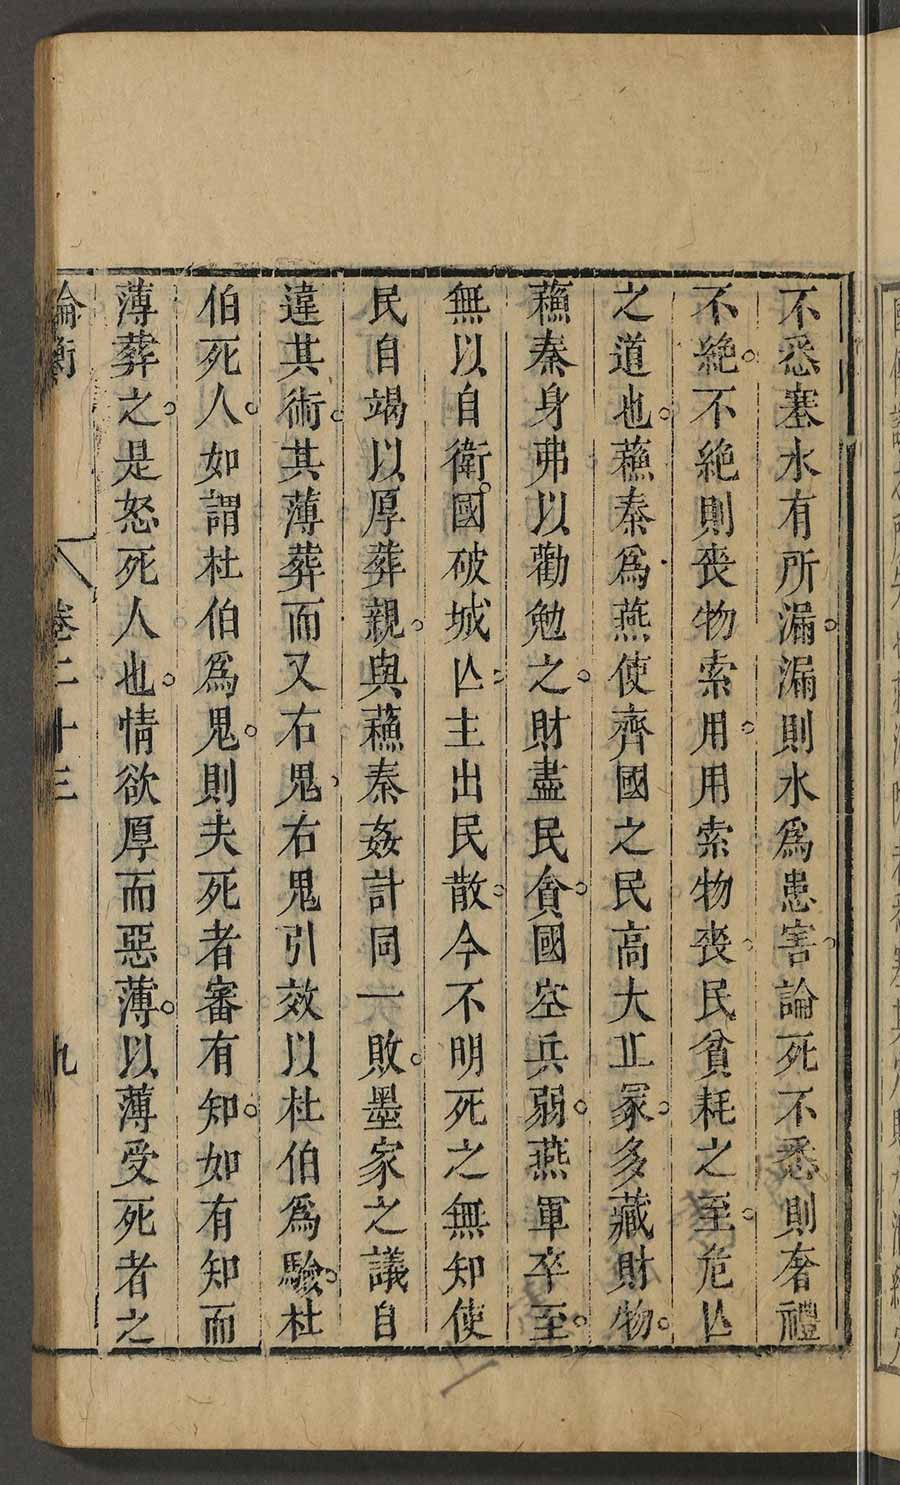 不悉塞水有所漏。漏則水爲患害。論死不悉則奢禮
不絶。不絶則䘮物索用。用索物䘮。民貧耗之至。危亾
之道也。蘓秦爲燕使齊國之民高大丘冢。多藏財物。
蘓秦身弗以勸勉之。財盡民貧。國空兵弱。燕軍卒至。
無以自衛。國破城亾。主出民散。今不明死之無知使
民自竭以厚葬親。與蘓秦姦計同一敗。墨家之議自
違其術。其薄葬而又右鬼。右鬼引效以杜伯爲驗。杜
伯死人。如謂杜伯爲鬼。則夫死者審有知。如有知而
薄葬之。是怒死人也。情欲厚而惡薄。以薄受死者之
論衡 卷二十三 九